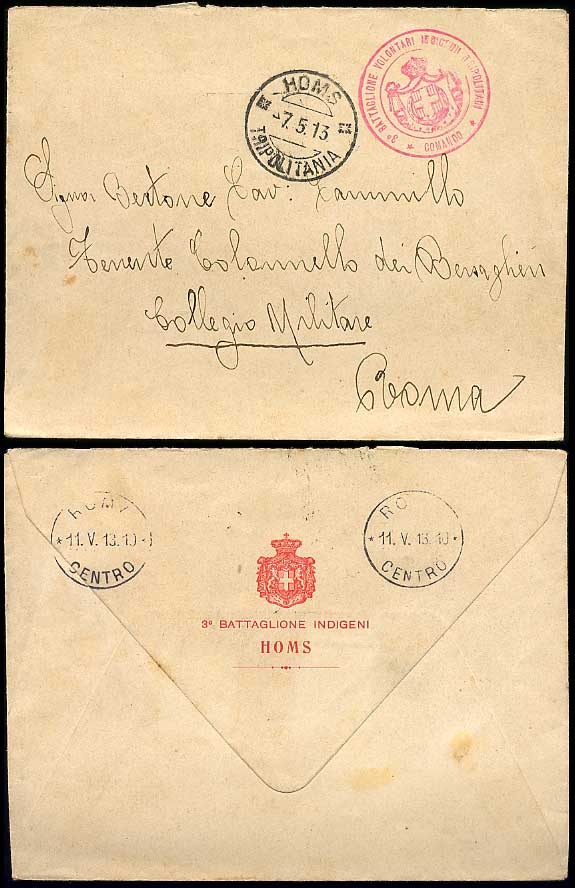 HOMS
-7.5.13
TRIPOLITANIA
3º BATTAGLIONE VOLONTARI TRIPOLITANI
COMANDO
Signor Bertone Cav: Cammillo
Tenente Colonnello dei Bersaglieri
Collegio Militare
Roma
ROMA
11. V. 13. 10
CENTRO
RO
11. V. 13. 10
CENTRO
3º BATTAGLIONE INDIGENI
HOMS